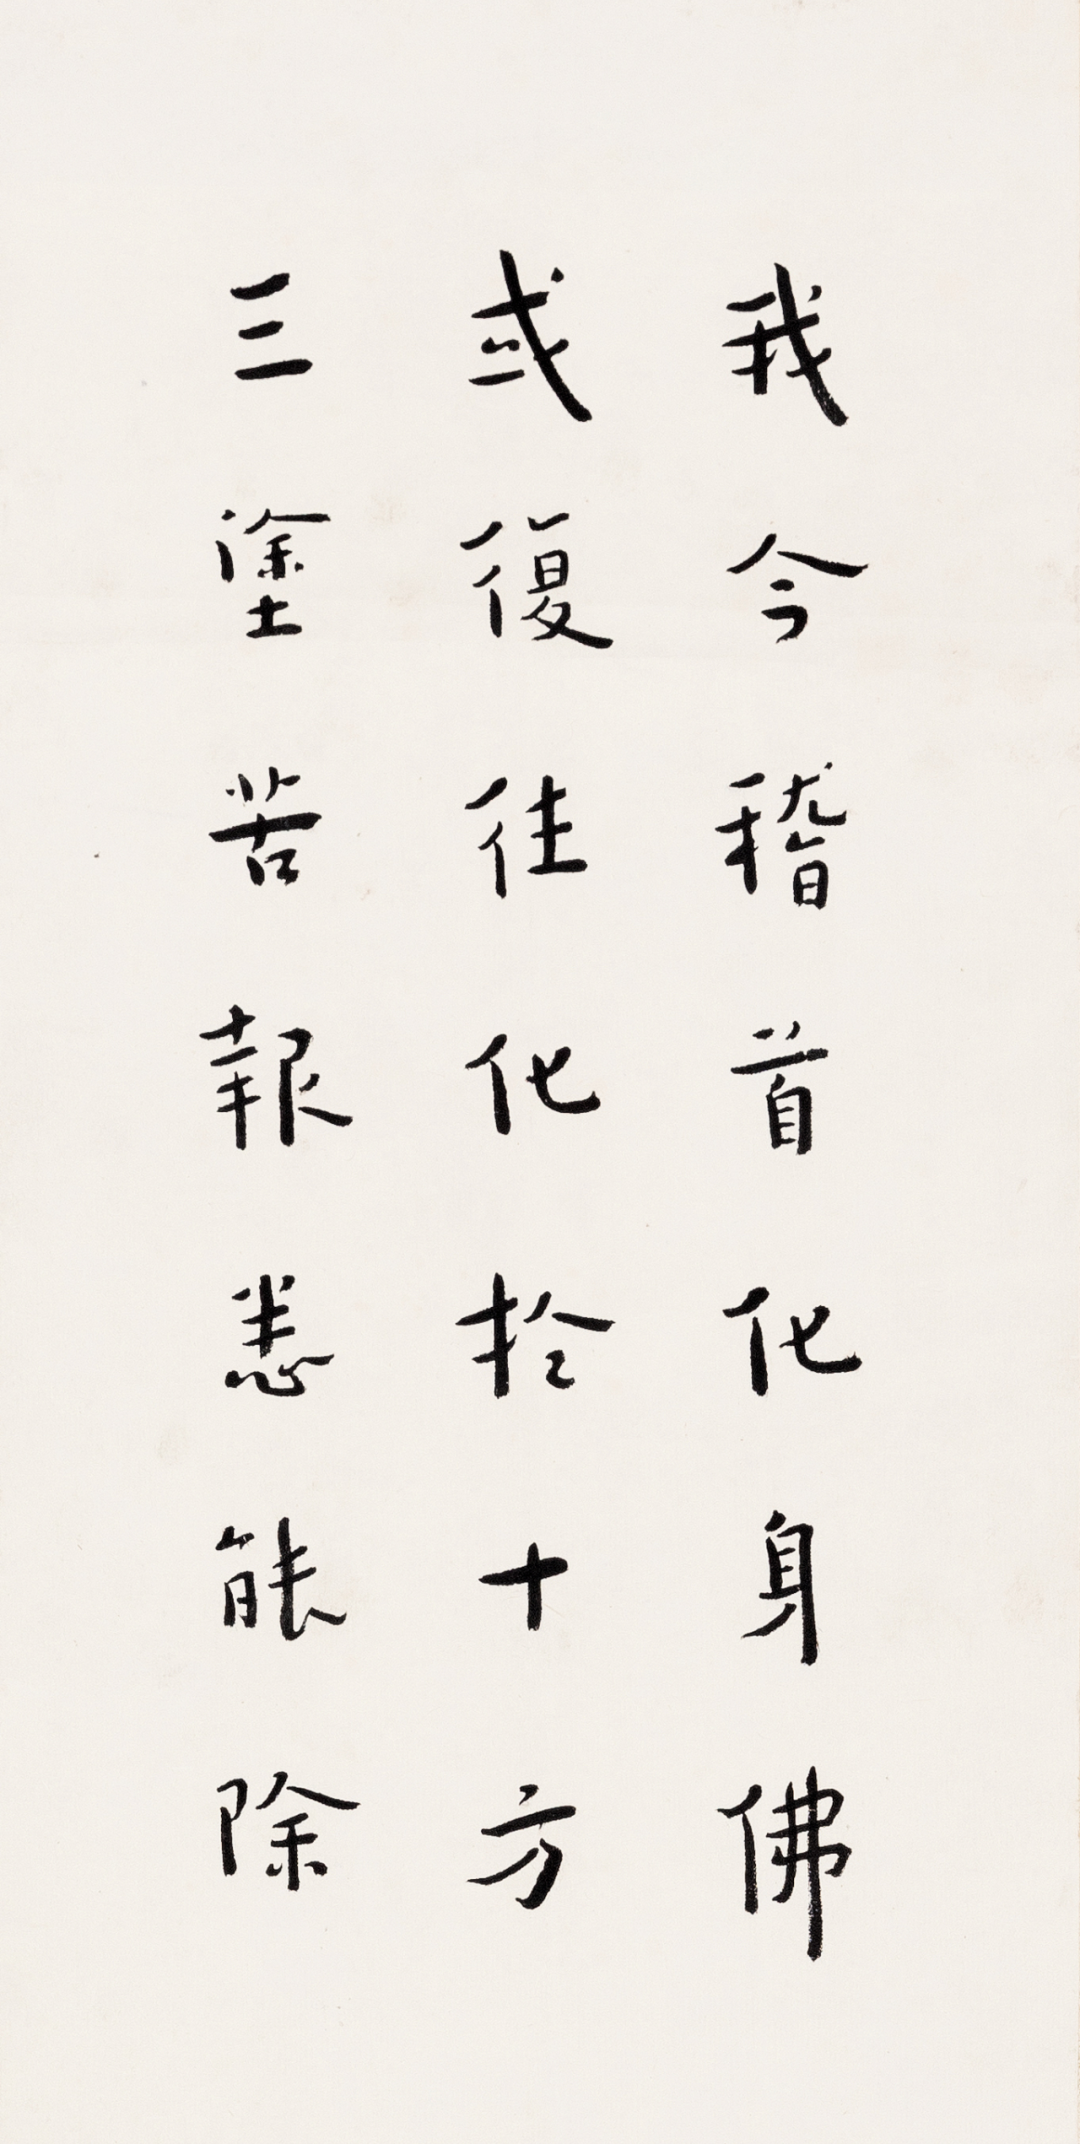 我今稽首化身佛
或復往化於十方
三塗苦報悉能除